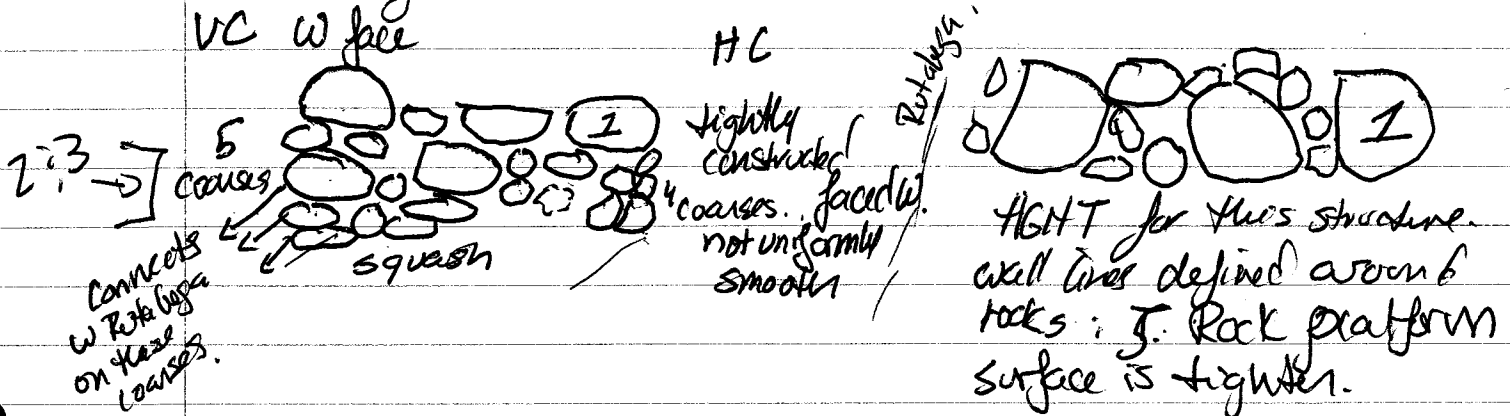 VC W face
HC
1
2:3
5
coarses
squash
connects
w Rutabega
on these
coarses.
tightly
constructed
4 coarses.. faced w.
not uniformly
smooth
Rutabega.
1
TIGHT for this structure.
wall lines defined aroun
rocks : 5. Rock platform
surface is tighter.